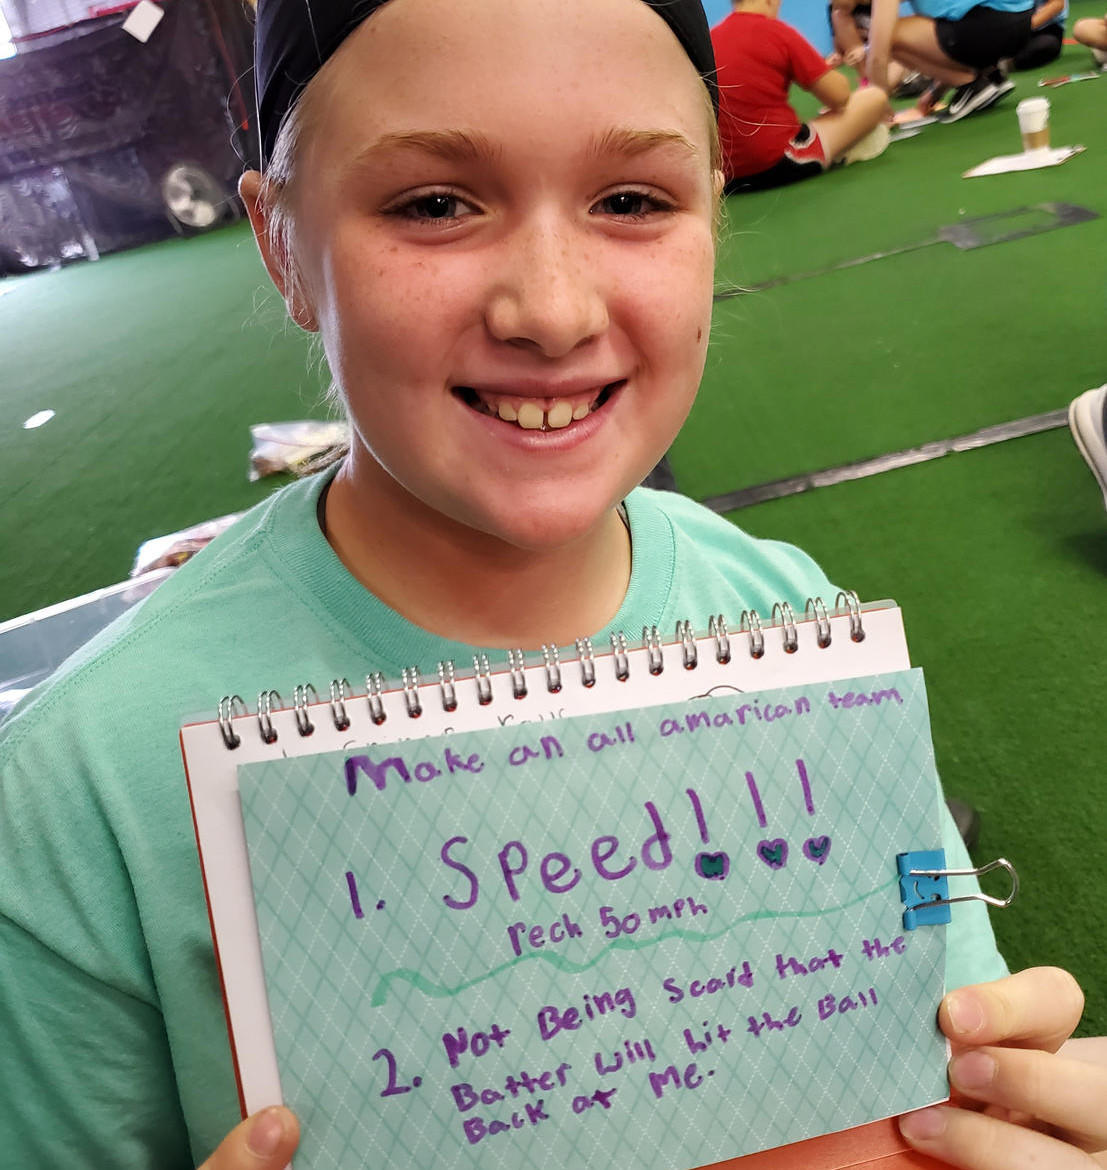 Make an all amarican team
1. Speed!!!
rech 50 mph
2. Not Being scard that the
Batter will hit the Ball
Back at Me.